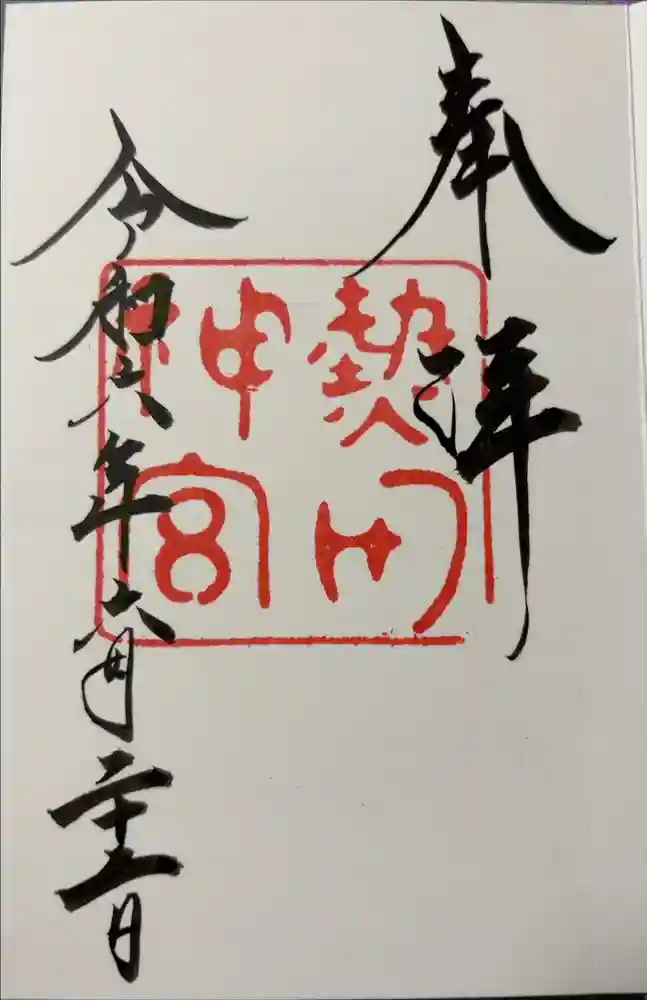 奉拝
熱田
神宮
令和六年六月二十日